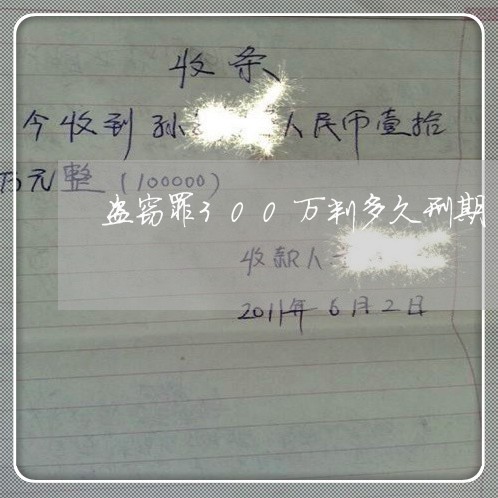 收条
今收到孙 人民币壹拾
万元整(100000)
盗窃罪300万判多久刑期
收款人
2011年6月2日